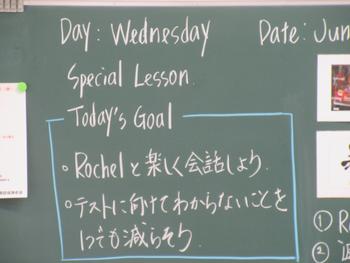 Day: Wednesday Date: Jun
Special Lesson
Today's Goal
・Rachelと楽しく会話しよう.
・テストに向けてわからないことを
1つでも減らそう.
① R
②